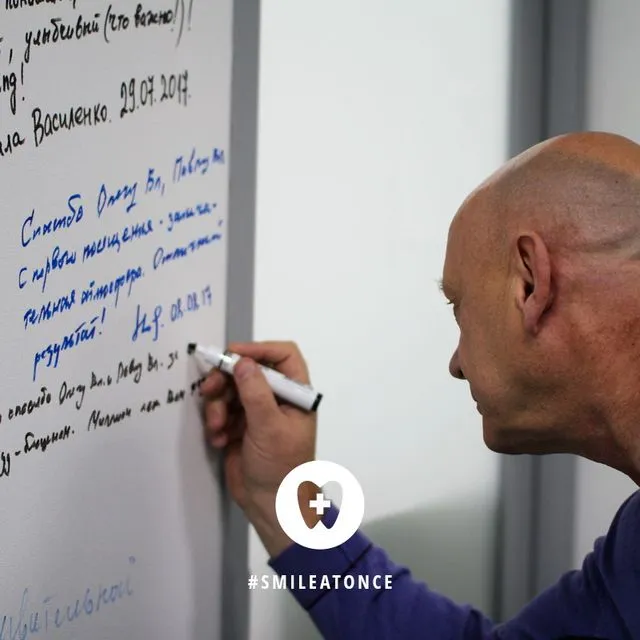 , улыбчивый (что важно!)!
ла Василенко. 29.07.2017.
Спасибо Олегу Вл, Павлу Вл.
С первого посещения - замеча-
тельная атмосфера. Отличный
результат!
02.08.17
спасибо Олегу Вл. и Павлу Вл. за
Миллион лет Вам
#SMILEATONCE